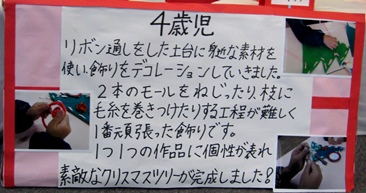 4歳児
リボン通しをした土台に身近な素材を
使い、飾りをデコレーションしていきました。
2本のモールをねじったり、枝に
毛糸を巻きつけたりする工程が難しく
1番頑張った飾りです。
1つ1つの作品に個性が表れ
素敵なクリスマスツリーが完成しました!